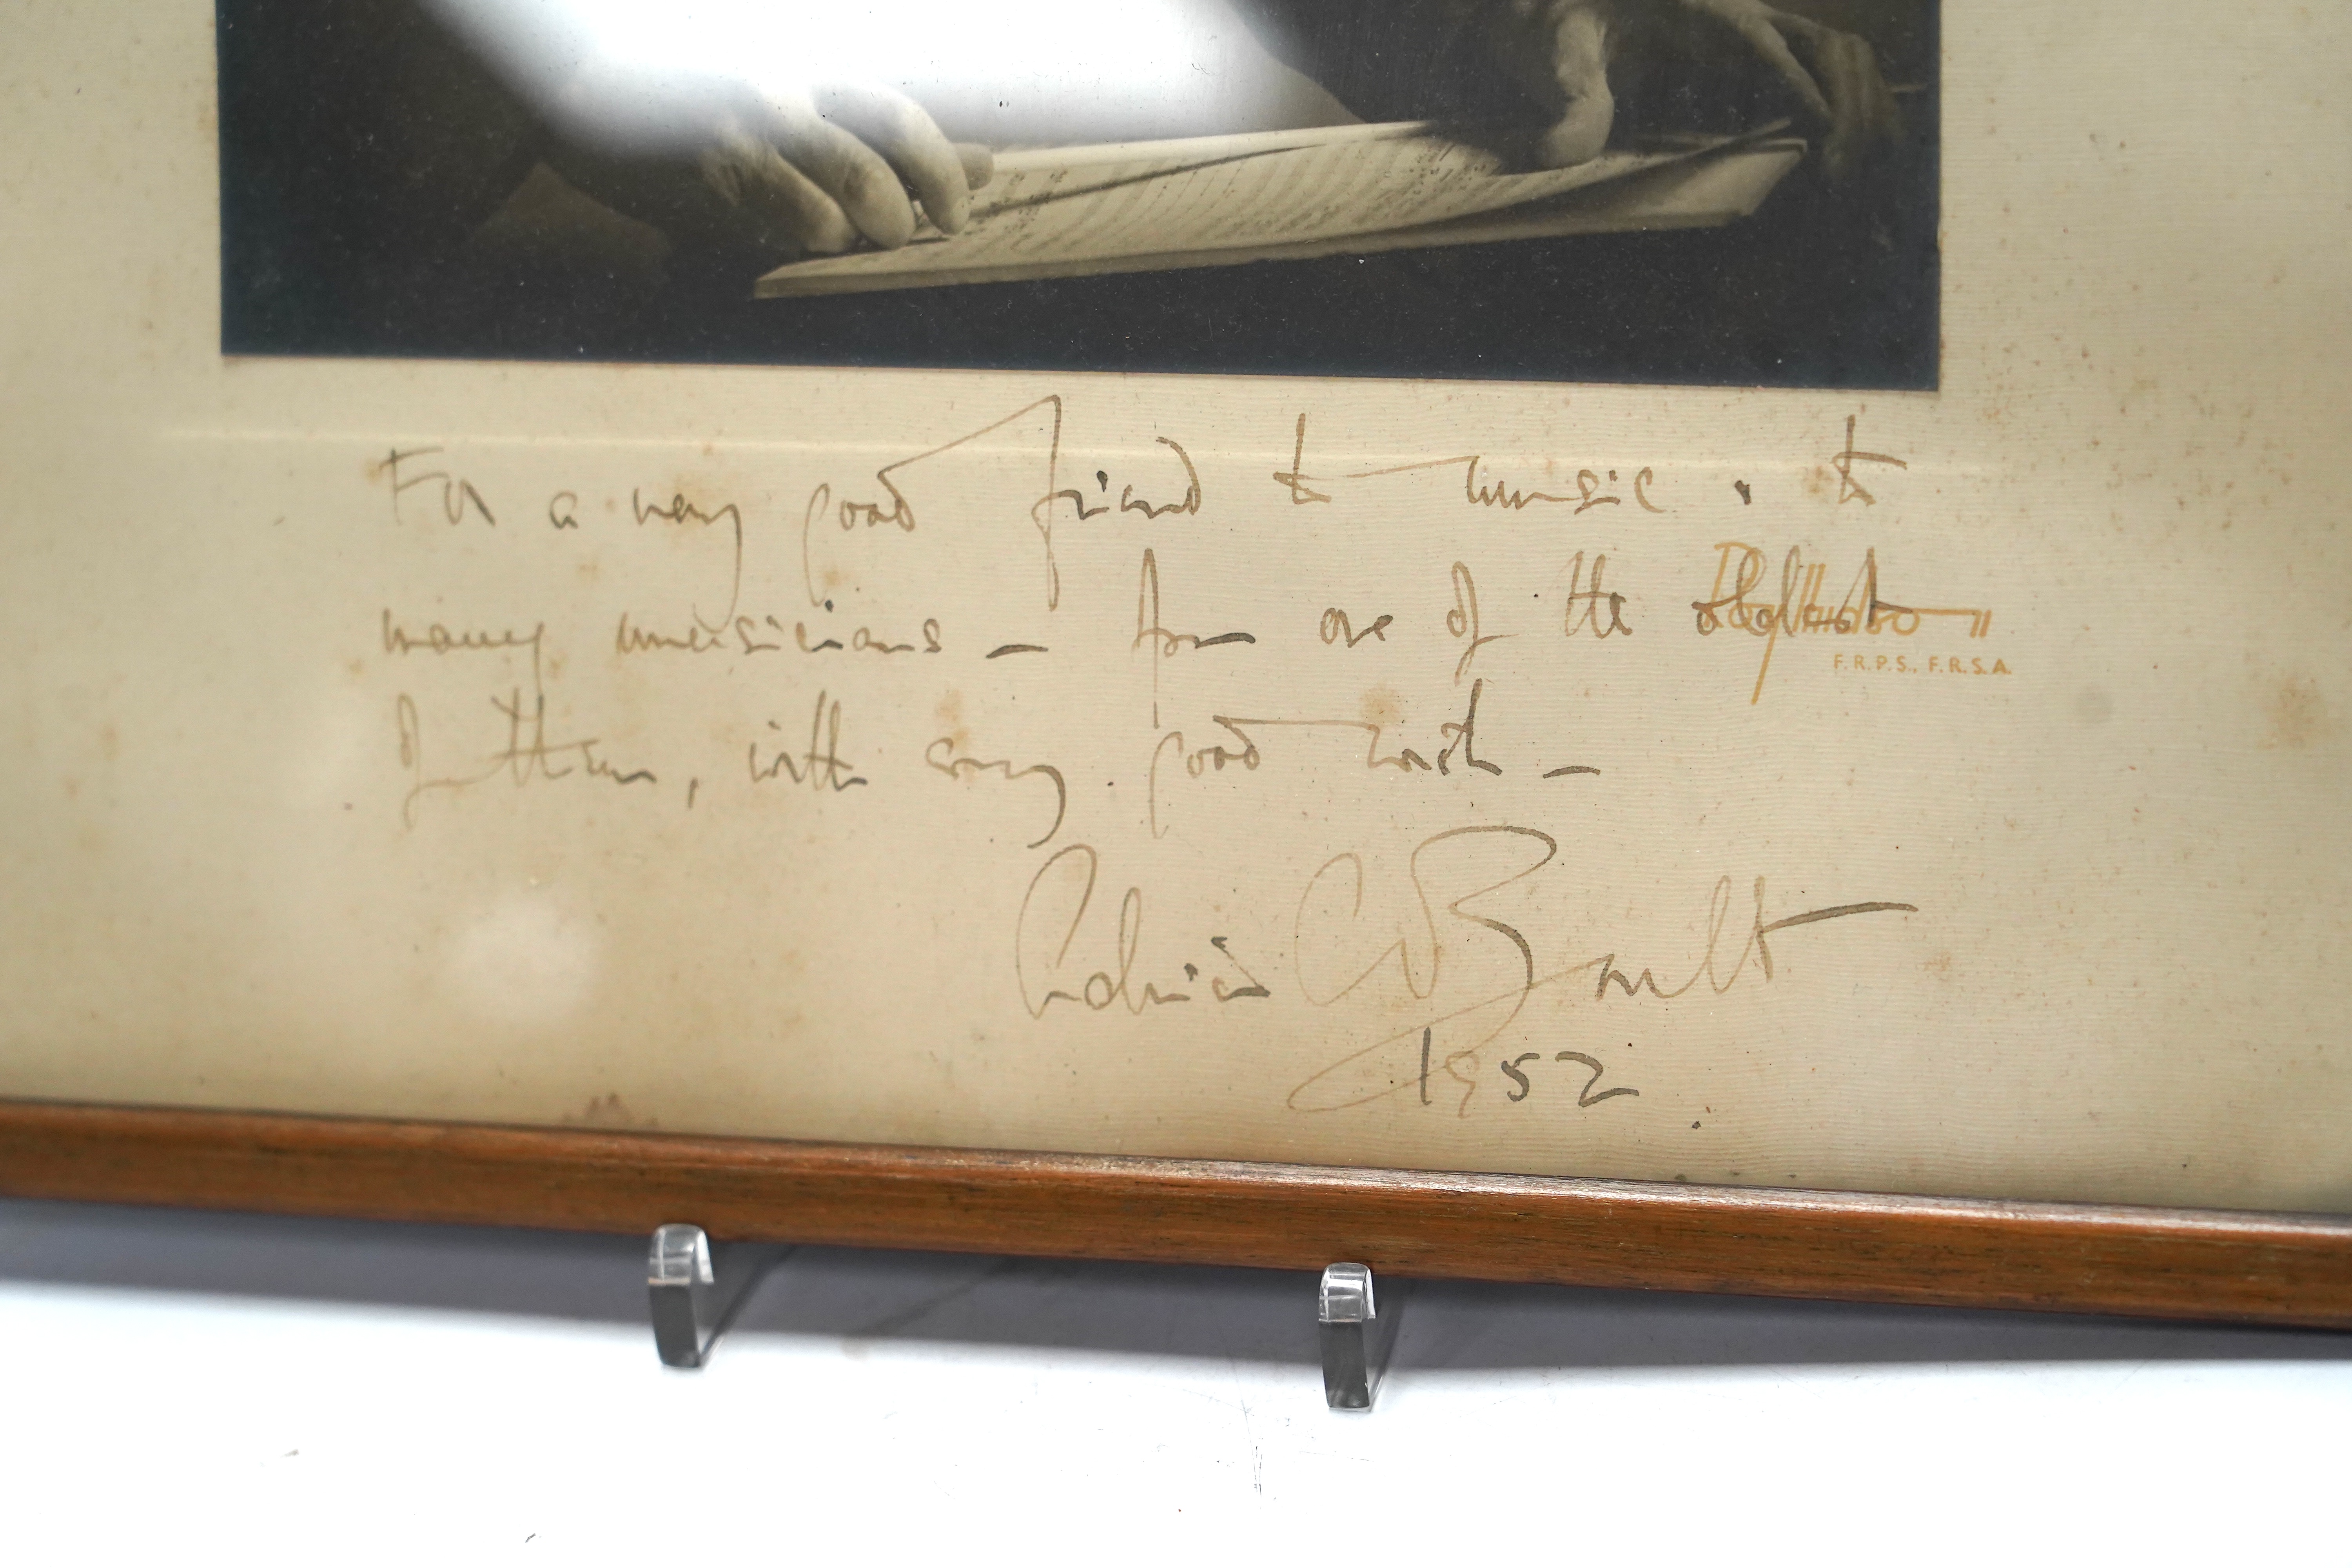 For a very good friend to music & to
many musicians – from one of the oldest
of them, with every good wish –
Adrian C Boult
1952
F.R.P.S., F.R.S.A.